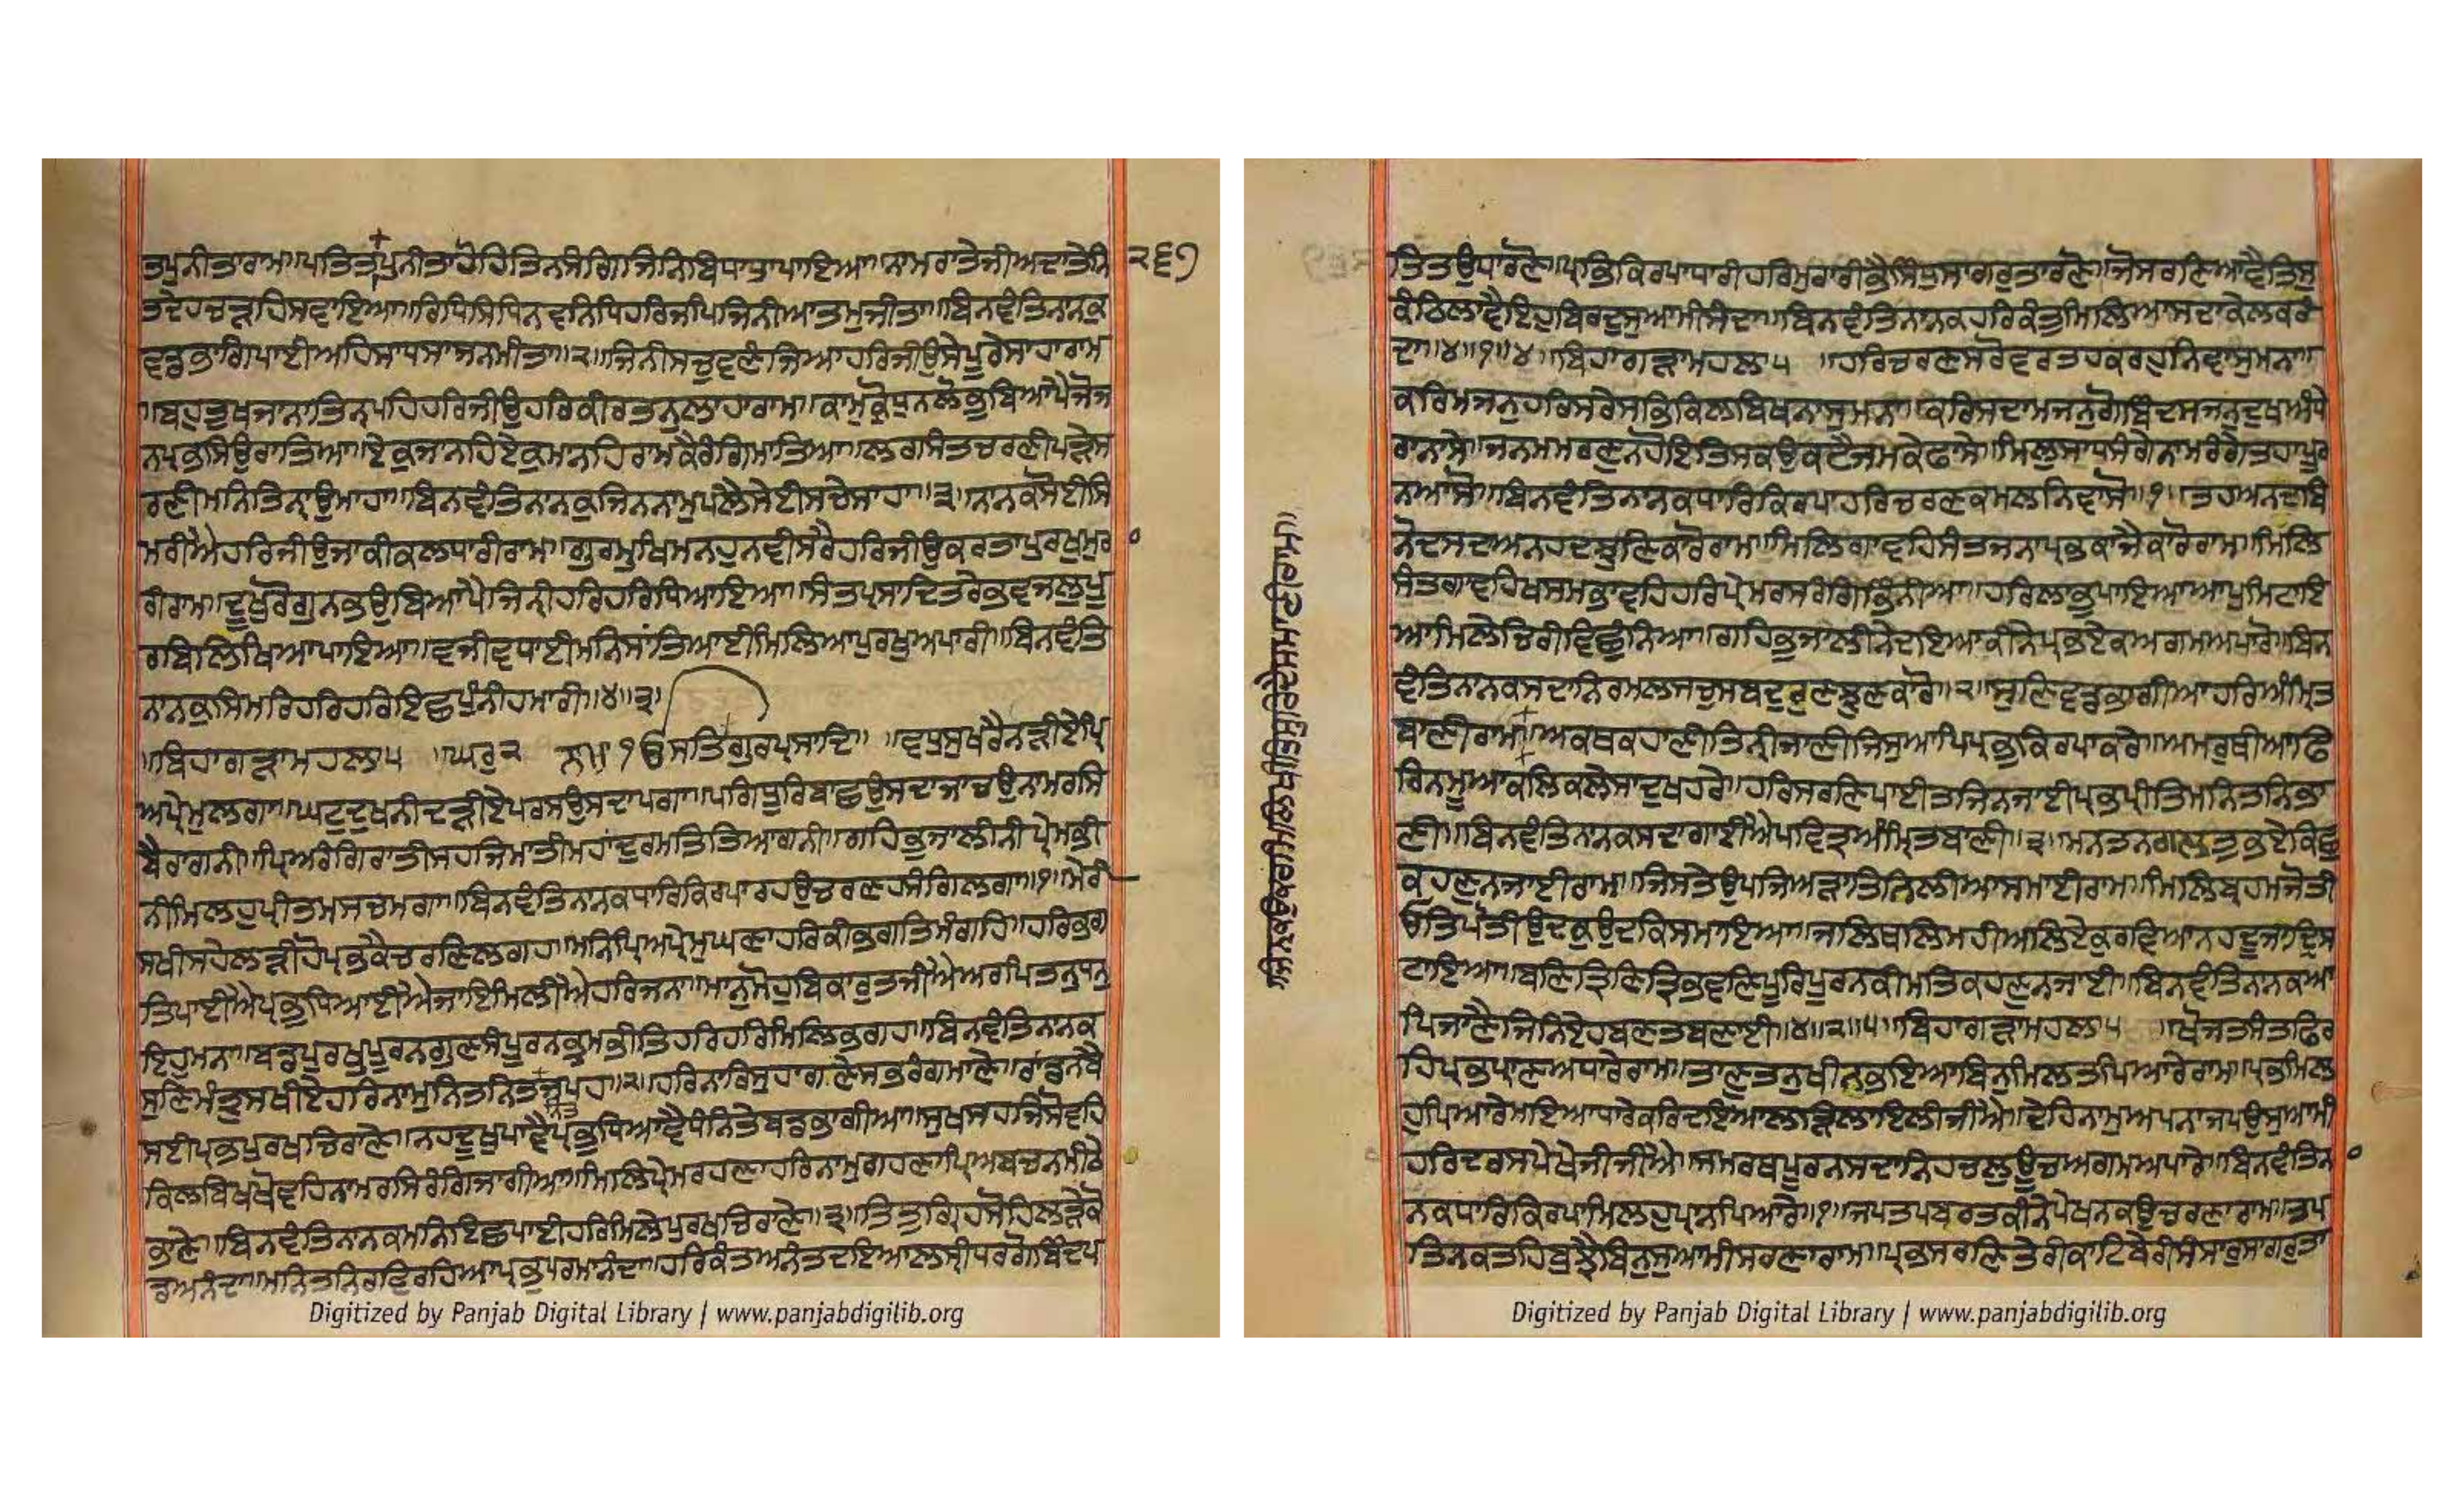 ਤਪੁਨੀਤਾਰਾਮ॥ਪਤਿਤਪੁਨੀਤਾਹੋਹਿਤਿਨਸੰਗਿਜਿਨਿਬਿਧਾਤਾਪਾਇਆ॥ਨਾਮਰਾਤੇਜੀਅਦਾਤੇਨਿ
੨੬੭
ਤਦੇਹਚੜਹਿਸਵਾਇਆ॥ਰਿਧਿਸਿਧਿਨਵਨਿਧਿਹਰਿਜਪਿਜਿਨੀਆਤਮੁਜੀਤਾ॥ਬਿਨਵੰਤਿਨਾਨਕੁ
ਵਡਭਾਗਿਪਾਈਅਹਿਸਾਧਸਾਜਨਮੀਤਾ॥੨॥ਜਿਨੀਸਚੁਵਣੰਜਿਆਹਰਿਜੀਉਸੇਪੂਰੇਸਾਹਾਰਾਮ
॥ਬਹੁਤੁਖਜਾਨਾਤਿਨਪਹਿਹਰਿਜੀਉਹਰਿਕੀਰਤਨੁਲਾਹਾਰਾਮ॥ਕਾਮੁਕ੍ਰੋਧੁਨਲੋਭੁਬਿਆਪੈਜੋਜ
ਨਪ੍ਰਭਸਿਉਰਾਤਿਆ॥ਏਕੁਜਾਨਹਿਏਕੁਮਾਨਹਿਰਾਮਕੈਰੰਗਿਮਾਤਿਆ॥ਲਗਿਸੰਤਚਰਣੀਪੜੇਸ
ਰਣੀਮਨਿਤਿਨਾਉਮਾਹਾ॥ਬਿਨਵੰਤਿਨਾਨਕੁਜਿਨਨਾਮੁਪਲੈਸੇਈਸਚੇਸਾਹਾ॥੩॥ਨਾਨਕਸੋਈਸਿ
ਮਰੀਐਹਰਿਜੀਉਜਾਕੀਕਲਧਾਰੀਰਾਮ॥ਗੁਰਮੁਖਿਮਨਹੁਨਵੀਸਰੈਹਰਿਜੀਉਕਰਤਾਪੁਰਖੁਮੁਰ
ਰੀਰਾਮ॥ਦੂਖੁਰੋਗੁਨਭਉਬਿਆਪੈਜਿਨੀਹਰਿਹਰਿਧਿਆਇਆ॥ਸੰਤਪ੍ਰਸਾਦਿਤਰੇਭਵਜਲੁਪੂ
ਰਬਿਲਿਖਿਆਪਾਇਆ॥ਵਜੀਵਧਾਈਮਨਿਸਾਂਤਿਆਈਮਿਲਿਆਪੁਰਖੁਅਪਾਰੀ॥ਬਿਨਵੰਤਿ
ਨਾਨਕੁਸਿਮਰਿਹਰਿਹਰਿਇਛਪੁੰਨੀਹਮਾਰੀ॥੪॥੩॥
॥ਬਿਹਾਗੜਾਮਹਲਾ੫ ॥ਘਰੁ੨ ੴਸਤਿਗੁਰਪ੍ਰਸਾਦਿ॥ ॥ਵਧੁਸੁਖੁਰੈਨੜੀਏਪ੍ਰਿ
ਅਪ੍ਰੇਮੁਲਗਾ॥ਘਟੁਦੁਖਨੀਦੜੀਏਪਰਸਉਸਦਾਪਗਾ॥ਪਗਧੂਰਿਬਾਛਉਸਦਾਜਾਚਉਨਾਮਰਸਿ
ਬੈਰਾਗਨੀ॥ਪ੍ਰਿਅਰੰਗਿਰਾਤੀਸਹਜਿਮਾਤੀਮਹਾਦੁਰਮਤਿਤਿਆਗਨੀ॥ਗਹਿਭੁਜਾਲੀਨੀਪ੍ਰੇਮਭੀ
ਨੀਮਿਲਹੁਪ੍ਰੀਤਮਸਚਮਗਾ॥ਬਿਨਵੰਤਿਨਾਨਕਧਾਰਿਕਿਰਪਾਰਹਉਚਰਣਹਸੰਗਿਲਗਾ॥੧॥ਮੇਰੀ
ਸਖੀਸਹੇਲੜੀਹੋਪ੍ਰਭਕੈਚਰਣਿਲਗਹ॥ਮਨਿਪ੍ਰਿਅਪ੍ਰੇਮੁਘਣਾਹਰਿਕੀਭਗਤਿਮੰਗਹਿ॥ਹਰਿਭਗ
ਤਿਪਾਈਐਪ੍ਰਭੁਧਿਆਈਐਜਾਇਮਿਲੀਐਹਰਿਜਨਾ॥ਮਾਨੁਮੋਹੁਬਿਕਾਰੁਤਜੀਐਅਰਪਿਤਨੁਧਨੁ
ਇਹੁਮਨਾ॥ਬਡਪੁਰਖੁਪੂਰਨਗੁਣਸੰਪੂਰਨਭ੍ਰਮਭੀਤਿਹਰਿਹਰਿਮਿਲਿਭਗਹ॥ਬਿਨਵੰਤਿਨਾਨਕ
ਸੁਣਿਮੰਤ੍ਰੁਸਖੀਏਹਰਿਨਾਮੁਨਿਤਨਿਤਜਪਹ॥੨॥ਹਰਿਨਾਰਿਸੁਹਾਗਣੇਸਭਰੰਗਮਾਣੇ॥ਰਾਂਡਨਬੈ
ਨਿਤ
ਸਈਪ੍ਰਭਪੁਰਖਚਿਰਾਣੇ॥ਨਹਦੂਖੁਪਾਵੈਪ੍ਰਭੁਧਿਆਵੈਧੰਨਿਤੇਬਡਭਾਗੀਆ॥ਸੁਖਸਹਜਿਸੋਵਹਿ
ਕਿਲਬਿਖਖੋਵਹਿਨਾਮਰਸਿਰੰਗਿਜਾਗੀਆ॥ਮਿਲਿਪ੍ਰੇਮਰਹਣਾਹਰਿਨਾਮੁਗਹਣਾਪ੍ਰਿਅਬਚਨਮੀਠੇ
ਭਾਣੇ॥ਬਿਨਵੰਤਿਨਾਨਕਮਨਿਇਛਪਾਈਹਰਿਮਿਲੇਪੁਰਖਚਿਰਾਣੇ॥੩॥ਤਿਤੁਗ੍ਰਿਹਸੋਹਿਲੜੇਕੋ
ਡਅਨੰਦਾ॥ਮਨਿਤਨਿਰਵਿਰਹਿਆਪ੍ਰਭੁਪਰਮਾਨੰਦਾ॥ਹਰਿਕੰਤਅਨੰਤਦਇਆਲਸ੍ਰੀਧਰਗੋਬਿੰਦਪ
ਤਿਤਉਧਾਰਣੋ॥ਪ੍ਰਭਿਕਿਰਪਾਧਾਰੀਹਰਿਮੁਰਾਰੀਭੈਸਿੰਧੁਸਾਗਰੁਤਾਰਣੋ॥ਜੋਸਰਣਿਆਵੈਤਿਸੁ
ਕੰਠਿਲਾਵੈਇਹੁਬਿਰਦੁਸੁਆਮੀਸੰਦਾ॥ਬਿਨਵੰਤਿਨਾਨਕਹਰਿਕੰਤੁਮਿਲਿਆਸਦਾਕੇਲਕਰੰ
ਦਾ॥੪॥੧॥੪॥ਬਿਹਾਗੜਾਮਹਲਾ੫ ॥ਹਰਿਚਰਣਸਰੋਵਰਤਹਕਰਹੁਨਿਵਾਸੁਮਨਾ॥
ਕਰਿਮਜਨੁਹਰਿਸਰੇਸਭਿਕਿਲਬਿਖਨਾਸੁਮਨਾ॥ਕਰਿਸਦਾਮਜਨੁਗੋਬਿੰਦਸਜਨੁਦੁਖਅੰਧੇ
ਰਾਨਾਸੇ॥ਜਨਮਮਰਣੁਨਹੋਇਤਿਸਕਉਕਟੈਜਮਕੇਫਾਸੇ॥ਮਿਲੁਸਾਧਸੰਗੇਨਾਮਰੰਗੇਤਹਾਪੂਰ
ਨਆਸੋ॥ਬਿਨਵੰਤਿਨਾਨਕਧਾਰਿਕਿਰਪਾਹਰਿਚਰਣਕਮਲਨਿਵਾਸੋ॥੧॥ਤਹਅਨਦਬਿ
ਨੋਦਸਦਾਅਨਹਦਝੁਣਿਕਾਰੋਰਾਮ॥ਮਿਲਿਗਾਵਹਿਸੰਤਜਨਾਪ੍ਰਭਕਾਜੈਕਾਰੋਰਾਮ॥ਮਿਲਿ
ਸੰਤਗਾਵਹਿਖਸਮਭਾਵਹਿਹਰਿਪ੍ਰੇਮਰਸਰੰਗਿਭਿੰਨੀਆ॥ਹਰਿਲਾਭੁਪਾਇਆਆਪੁਮਿਟਾਇ
ਆਮਿਲੇਚਿਰੀਵਿਛੁੰਨਿਆ॥ਗਹਿਭੁਜਾਲੀਨੇਦਇਆਕੀਨੇਪ੍ਰਭਏਕਅਗਮਅਪਾਰੋ॥ਬਿਨ
ਵੰਤਿਨਾਨਕਸਦਾਨਿਰਮਲਸਚੁਸਬਦੁਰੁਣਝੁਣਕਾਰੋ॥੨॥ਸੁਣਿਵਡਭਾਗੀਆਹਰਿਅੰਮ੍ਰਿਤ
ਬਾਣੀਰਾਮ॥ਅਕਥਕਹਾਣੀਤਿਨੀਜਾਣੀਜਿਸੁਆਪਿਪ੍ਰਭੁਕਿਰਪਾਕਰੇ॥ਅਮਰੁਥੀਆਫਿ
ਰਿਨਮੂਆਕਲਿਕਲੇਸਾਦੁਖਹਰੇ॥ਹਰਿਸਰਣਿਪਾਈਤਜਿਨਜਾਈਪ੍ਰਭਪ੍ਰੀਤਿਮਨਿਤਨਿਭਾ
ਣੀ॥ਬਿਨਵੰਤਿਨਾਨਕਸਦਾਗਾਈਐਪਵਿਤ੍ਰਅੰਮ੍ਰਿਤਬਾਣੀ॥੩॥ਮਨਤਨਗਲਤੁਭਏਕਿਛੁ
ਕਹਣੁਨਜਾਈਰਾਮ॥ਜਿਸਤੇਉਪਜਿਅੜਾਤਿਨਿਲੀਆਸਮਾਈਰਾਮ॥ਮਿਲਿਬ੍ਰਹਮਜੋਤੀ
ਓਤਿਪੋਤੀਉਦਕੁਉਦਕਿਸਮਾਇਆ॥ਜਲਿਥਲਿਮਹੀਅਲਿਏਕੁਰਵਿਆਨਹਦੂਜਾਦ੍ਰਿਸ
ਟਾਇਆ॥ਬਣਿਤ੍ਰਿਣਿਤ੍ਰਿਭਵਣਿਪੂਰਿਪੂਰਨਕੀਮਤਿਕਹਣੁਨਜਾਈ॥ਬਿਨਵੰਤਿਨਾਨਕਆ
ਪਿਜਾਣੈਜਿਨਿਏਹਬਣਤਬਣਾਈ॥੪॥੨॥੫॥ਬਿਹਾਗੜਾਮਹਲਾ੫ ॥ਖੋਜਤਸੰਤਫਿਰ
ਹਿਪ੍ਰਭਪ੍ਰਾਣਅਧਾਰੇਰਾਮ॥ਤਾਣੁਤਨੁਖੀਨਭਇਆਬਿਨੁਮਿਲਤਪਿਆਰੇਰਾਮ॥ਪ੍ਰਭਮਿਲ
ਹੁਪਿਆਰੇਮਇਆਧਾਰੇਕਰਿਦਇਆਲੜਿਲਾਇਲੀਜੀਐ॥ਦੇਹਿਨਾਮੁਅਪਨਾਜਪਉਸੁਆਮੀ
ਹਰਿਦਰਸਪੇਖੇਜੀਜੀਐ॥ਸਮਰਥਪੂਰਨਸਦਾਨਿਹਚਲਊਚਅਗਮਅਪਾਰੇ॥ਬਿਨਵੰਤਿਨ
ਨਕਧਾਰਿਕਿਰਪਾਮਿਲਹੁਪ੍ਰਾਨਪਿਆਰੇ॥੧॥ਜਪਤਪਬਰਤਕੀਨੇਪੇਖਨਕਉਚਰਣਾਰਾਮ॥ਤਪ
ਤਿਨਕਤਹਿਬੁਝੈਬਿਨੁਸੁਆਮੀਸਰਣਾਰਾਮ॥ਪ੍ਰਭਸਰਣਿਤੇਰੀਕਾਟਿਬੇਰੀਸੰਸਾਰੁਸਾਗਰੁਤਾ
Digitized by Panjab Digital Library | www.panjabdigilib.org
Digitized by Panjab Digital Library | www.panjabdigilib.org